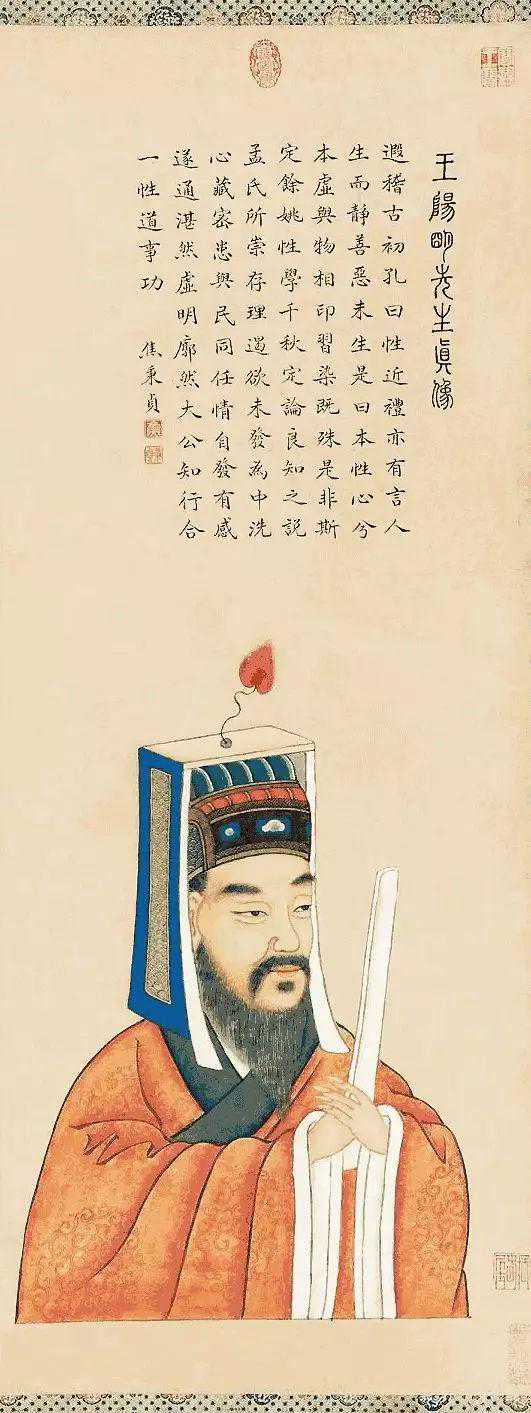 王陽明先生真像
遐稽古初孔曰性近禮亦有言人
生而靜善惡未生是曰本性心兮
本虛與物相印習染既殊是非斯
定餘姚性學千秋定論良知之説
孟氏所崇存理遏欲未發為中洗
心藏密患與民同任情自發有感
遂通湛然虛明廓然大公知行合
一性道事功
焦秉貞